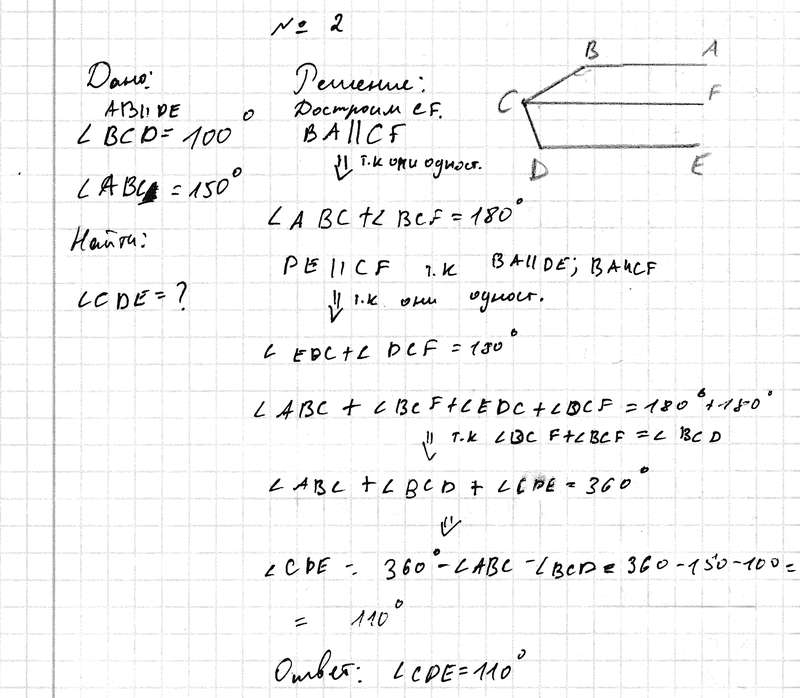 № 2
Дано:
AB||DE
∠BCD = 100°
∠ABC = 150°
Найти:
∠CDE = ?
Решение:
Достроим CF.
BA||CF
⇓ т.к они одност.
∠ABC + ∠BCF = 180°
DE||CF т.к BA||DE; BA||CF
⇓ т.к они одност.
∠EDC + ∠DCF = 180°
∠ABC + ∠BCF + ∠EDC + ∠DCF = 180° + 180°
⇓ т.к ∠DCF + ∠BCF = ∠BCD
∠ABC + ∠BCD + ∠CDE = 360°
⇓
∠CDE = 360° - ∠ABC - ∠BCD = 360 - 150 - 100 =
= 110°
Ответ: ∠CDE = 110°
B A
C F
D E